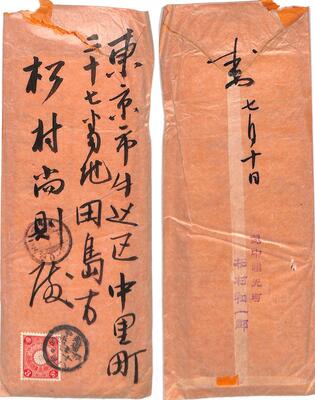 東京市牛込区中里町
二十七番地田島方
松村尚則殿
七月十日
松村和一郎